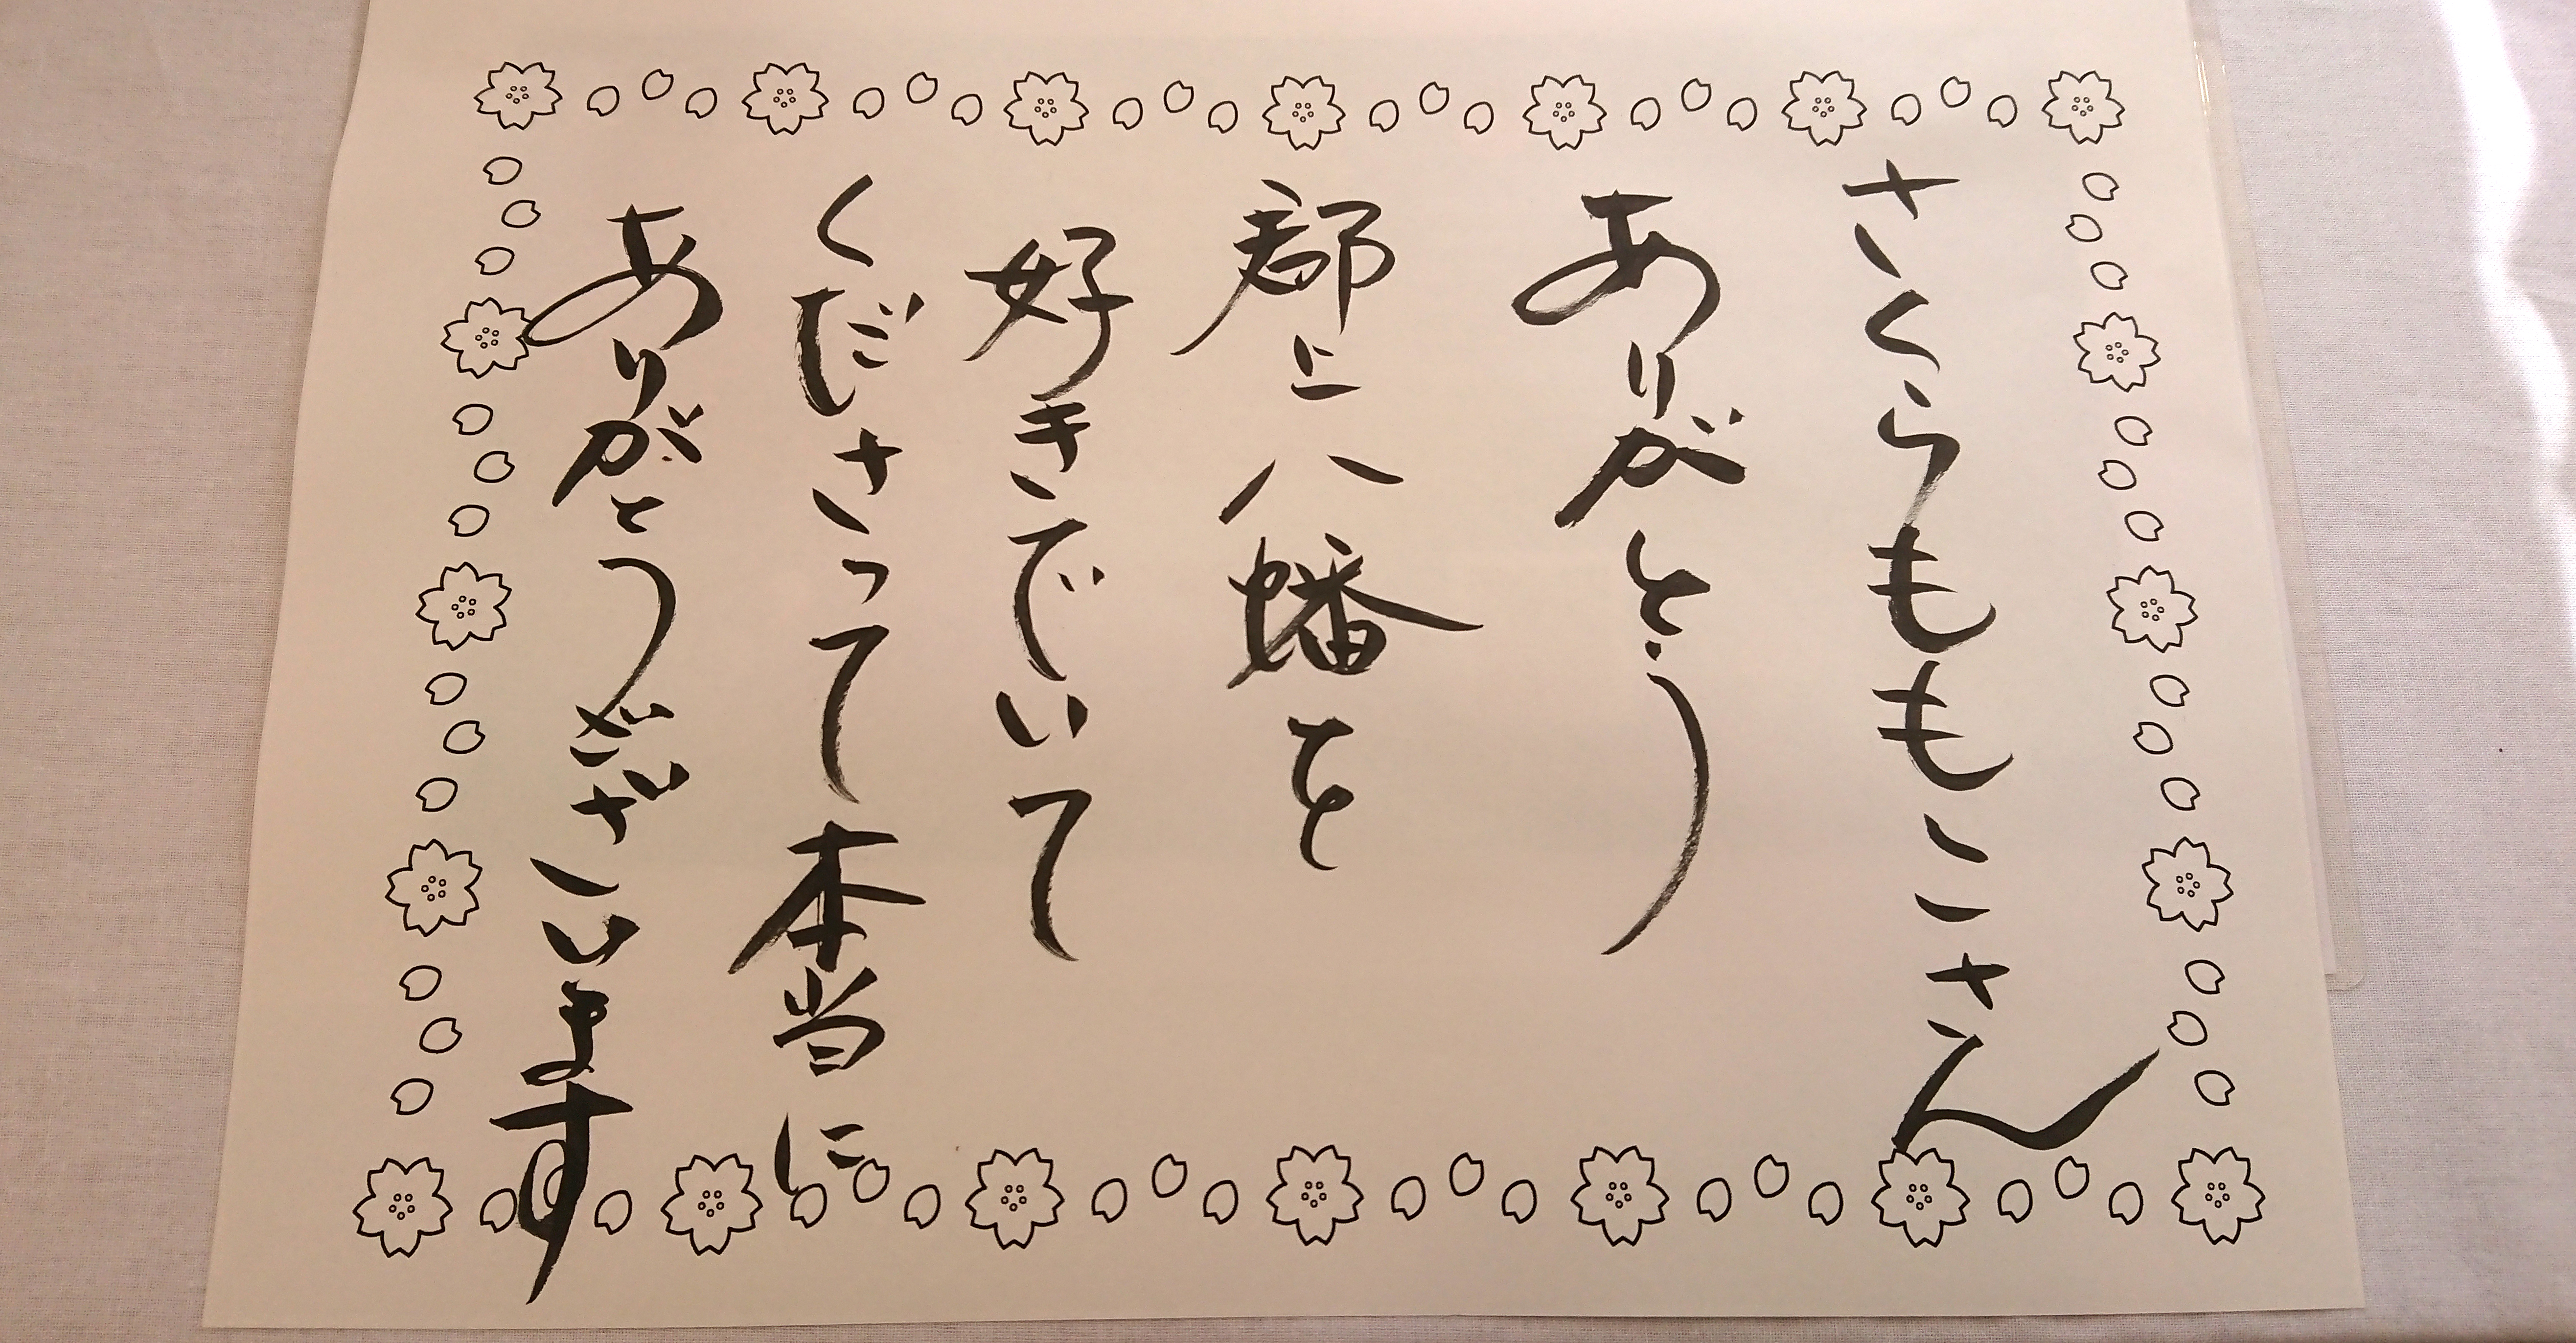 さくらももこさん
ありがとう
郡上八幡を
好きでいて
くださって本当に
ありがとうございます